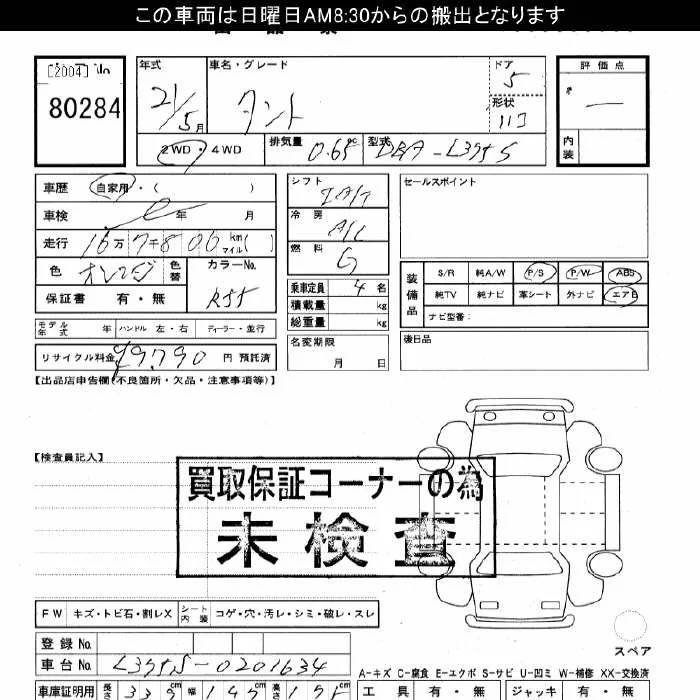 この車両は日曜日AM8:30からの搬出となります
[2004] No
80284
年式
21/5月
車名・グレード
タント
ドア
5
形状
ハコ
評価点
内装
2WD・4WD
排気量 0.65 cc
型式 DBA-L375S
車歴 自家用・( )
車検 年 月
走行 16万7千806 km マイル( )
色 オレンジ 色替
カラーNo. R55
保証書 有・無
シフト IAT
冷房 A/C
燃料 G
乗車定員 4名
積載量 kg
総重量 kg
セールスポイント
装備品
S/R 純A/W P/S P/W ABS
純TV 純ナビ 革シート 外ナビ エアB
ナビ型番:
モデル年式 年 ハンドル 左・右 ディーラー・並行
名変期限
月 日
後日品
リサイクル料金 ¥9,790 円 預託済
【出品店申告欄(不良箇所・欠品・注意事項等)】
【検査員記入】
買取保証コーナーの為
未検査
FW キズ・トビ石・割レX シート内装 コゲ・穴・汚レ・シミ・破レ・スレ
スペア
登録No.
車台No. L375S-0201634
A-キズ C-腐食 E-エクボ S-サビ U-凹ミ W-補修 XX-交換済
車庫証明用 長さ 339 cm 幅 147 cm 高さ 175 cm
工具 有・無 ジャッキ 有・無